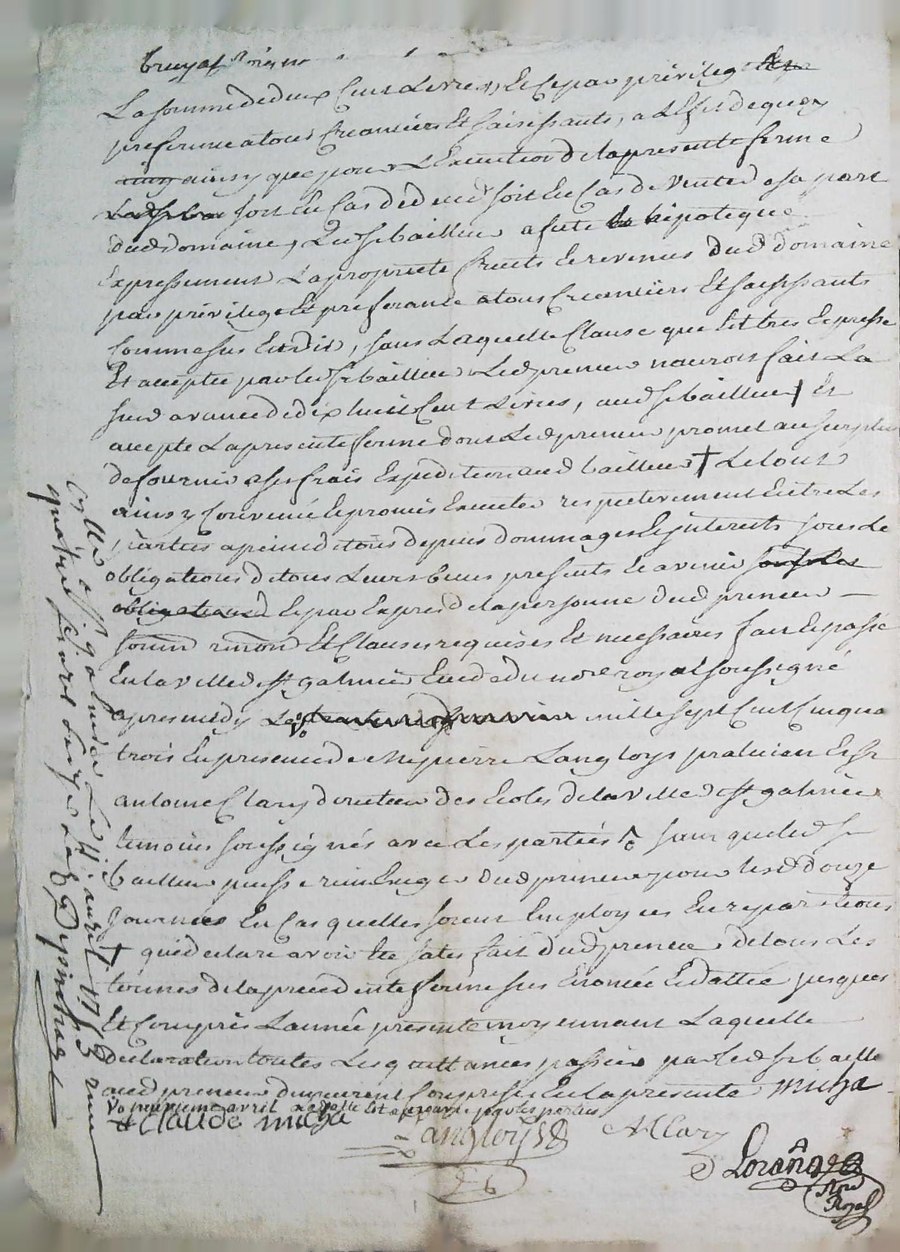 La somme de deux Cent Livres, Et Ce par privilege
preferance a tous Creanciers Et saisissants, a L'Effet de quoy
ainsy que pour L'Execution de la presente ferme
soit En Cas de soit En Cas de Vente de sa part
dud domaine, Led Sr bailleur a hipotequé
Expressement La proprieté fruits Et revenus dud domaine
par privilege Et preferance a tous Creanciers Et saisissants
Comme sus Est dit, sans Laquelle Clause que Est tres Expresse
Et acceptée par led Sr bailleur Led preneur n'auroit fait La
susd avance de dix huit Cent Livres, aud Sr bailleur Et
accepte La presente ferme dont Led preneur promet au surplus
de fournir a ses frais Expedition aud bailleur † Le tout
ainsy Convenu Et promis Executer respectivement Entre Les
parties a peine de tous depens dommages Et interests sous Le
obligations de tous Leurs biens presents Et avenir sous les
obligations Et par Exprès de la personne dud preneur
Et Clauses requises Et necessaires fait Et passé
En la ville de St galmier Etude du nore royal soussigné
apres midy Le mille sept Cent Cinqua
trois En presence de Me pierre Langloys praticien Et Sr
antoine Clary directeur des Ecoles de la ville de St galmier
temoins soussignés avec Les parties sans que led Sr
bailleur puisse rien Exiger dud preneur pour lesd douze
Journées En Cas quelles soient Employées En reparations
† qui declare avoir Eté satisfait dud preneur de tous Les
termes de la precedente ferme sus Enoncée Et dattée jusques
Et Compris L'année presente moyennant Laquelle
declaration toutes Les quittances passées par led Sr baille
aud preneur demeurent Comprises En la presente micha
neufvieme avril
Claude micha
Langloys ACLary
Lorañge
Nore
Royal
Collé a St galmier Le 11 avril 1753 reçu
quatre livres seize s